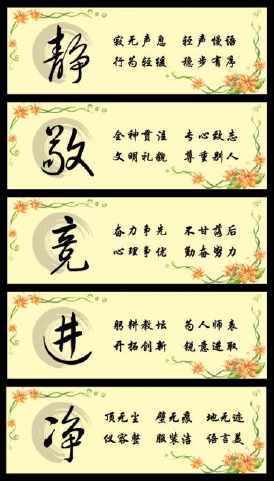 静
寂无声息 轻声慢语
行为轻缓 稳步有序
敬
全神贯注 专心致志
文明礼貌 尊重别人
竞
奋力争先 不甘落后
心理争优 勤奋努力
进
躬耕教坛 为人师表
开拓创新 锐意进取
净
顶无尘 壁无痕 地无迹
仪容整 服装洁 语言美